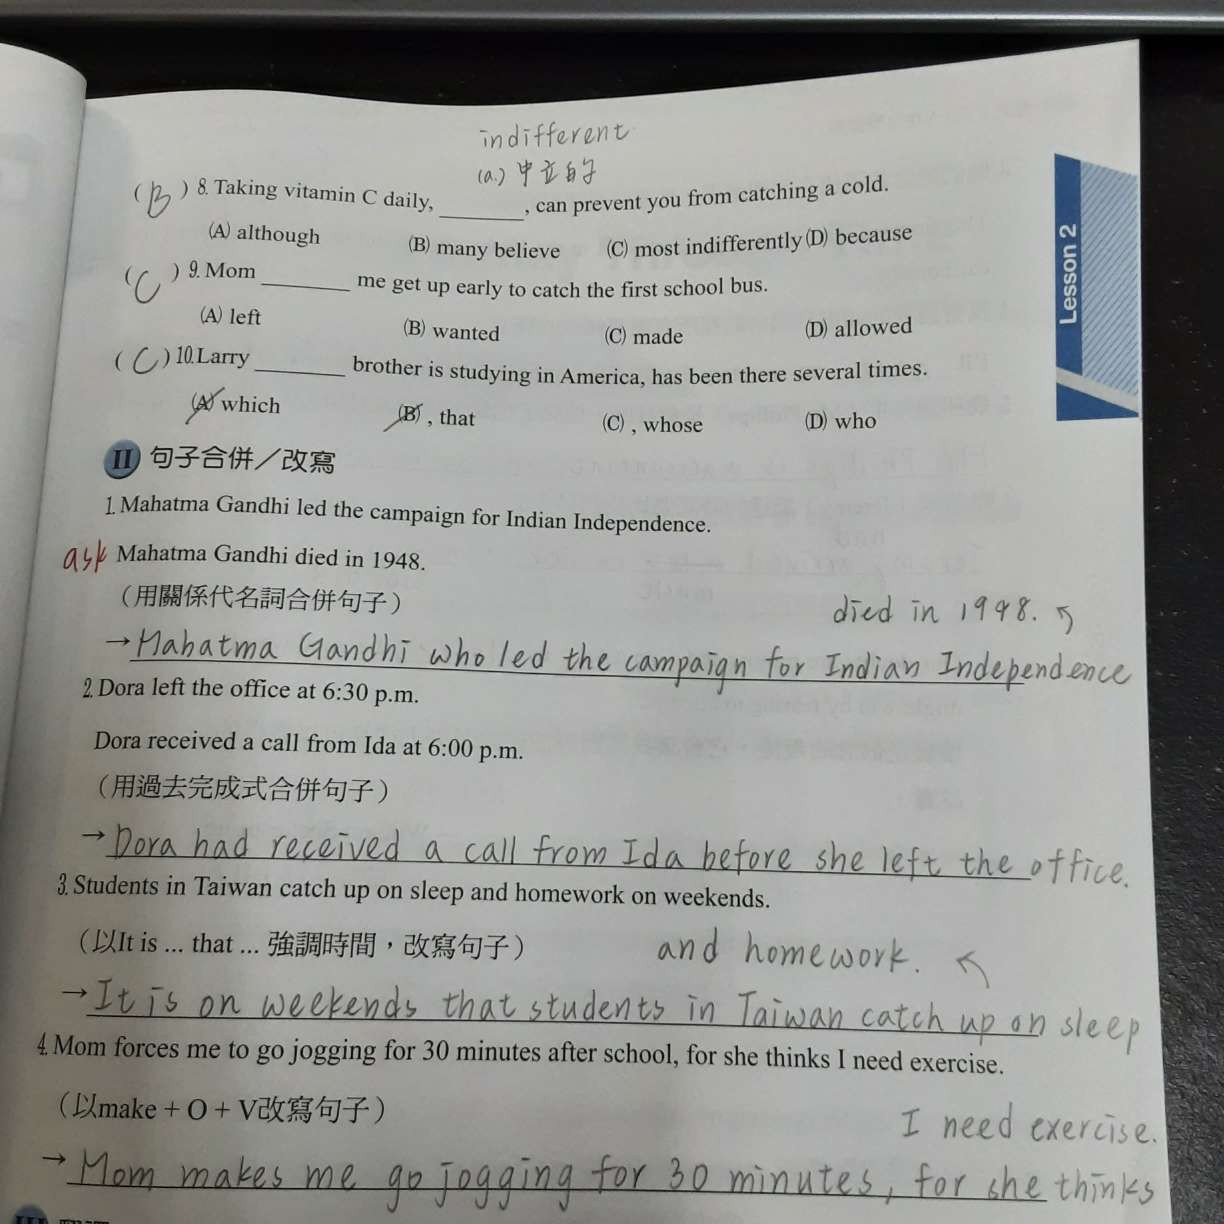 indifferent
(a.) 中立的
(B) 8. Taking vitamin C daily, ________, can prevent you from catching a cold.
(A) although (B) many believe (C) most indifferently (D) because
(C) 9. Mom ________ me get up early to catch the first school bus.
(A) left (B) wanted (C) made (D) allowed
(C) 10. Larry ________ brother is studying in America, has been there several times.
(A) which (B) , that (C) , whose (D) who
Lesson 2
II 句子合併／改寫
1. Mahatma Gandhi led the campaign for Indian Independence.
ask Mahatma Gandhi died in 1948.
（用關係代名詞合併句子）
died in 1948.
→Mahatma Gandhi who led the campaign for Indian Independence
2. Dora left the office at 6:30 p.m.
Dora received a call from Ida at 6:00 p.m.
（用過去完成式合併句子）
→Dora had received a call from Ida before she left the office.
3. Students in Taiwan catch up on sleep and homework on weekends.
（以It is ... that ... 強調時間，改寫句子）
and homework.
→It is on weekends that students in Taiwan catch up on sleep
4. Mom forces me to go jogging for 30 minutes after school, for she thinks I need exercise.
（以make + O + V改寫句子）
I need exercise.
→Mom makes me go jogging for 30 minutes, for she thinks